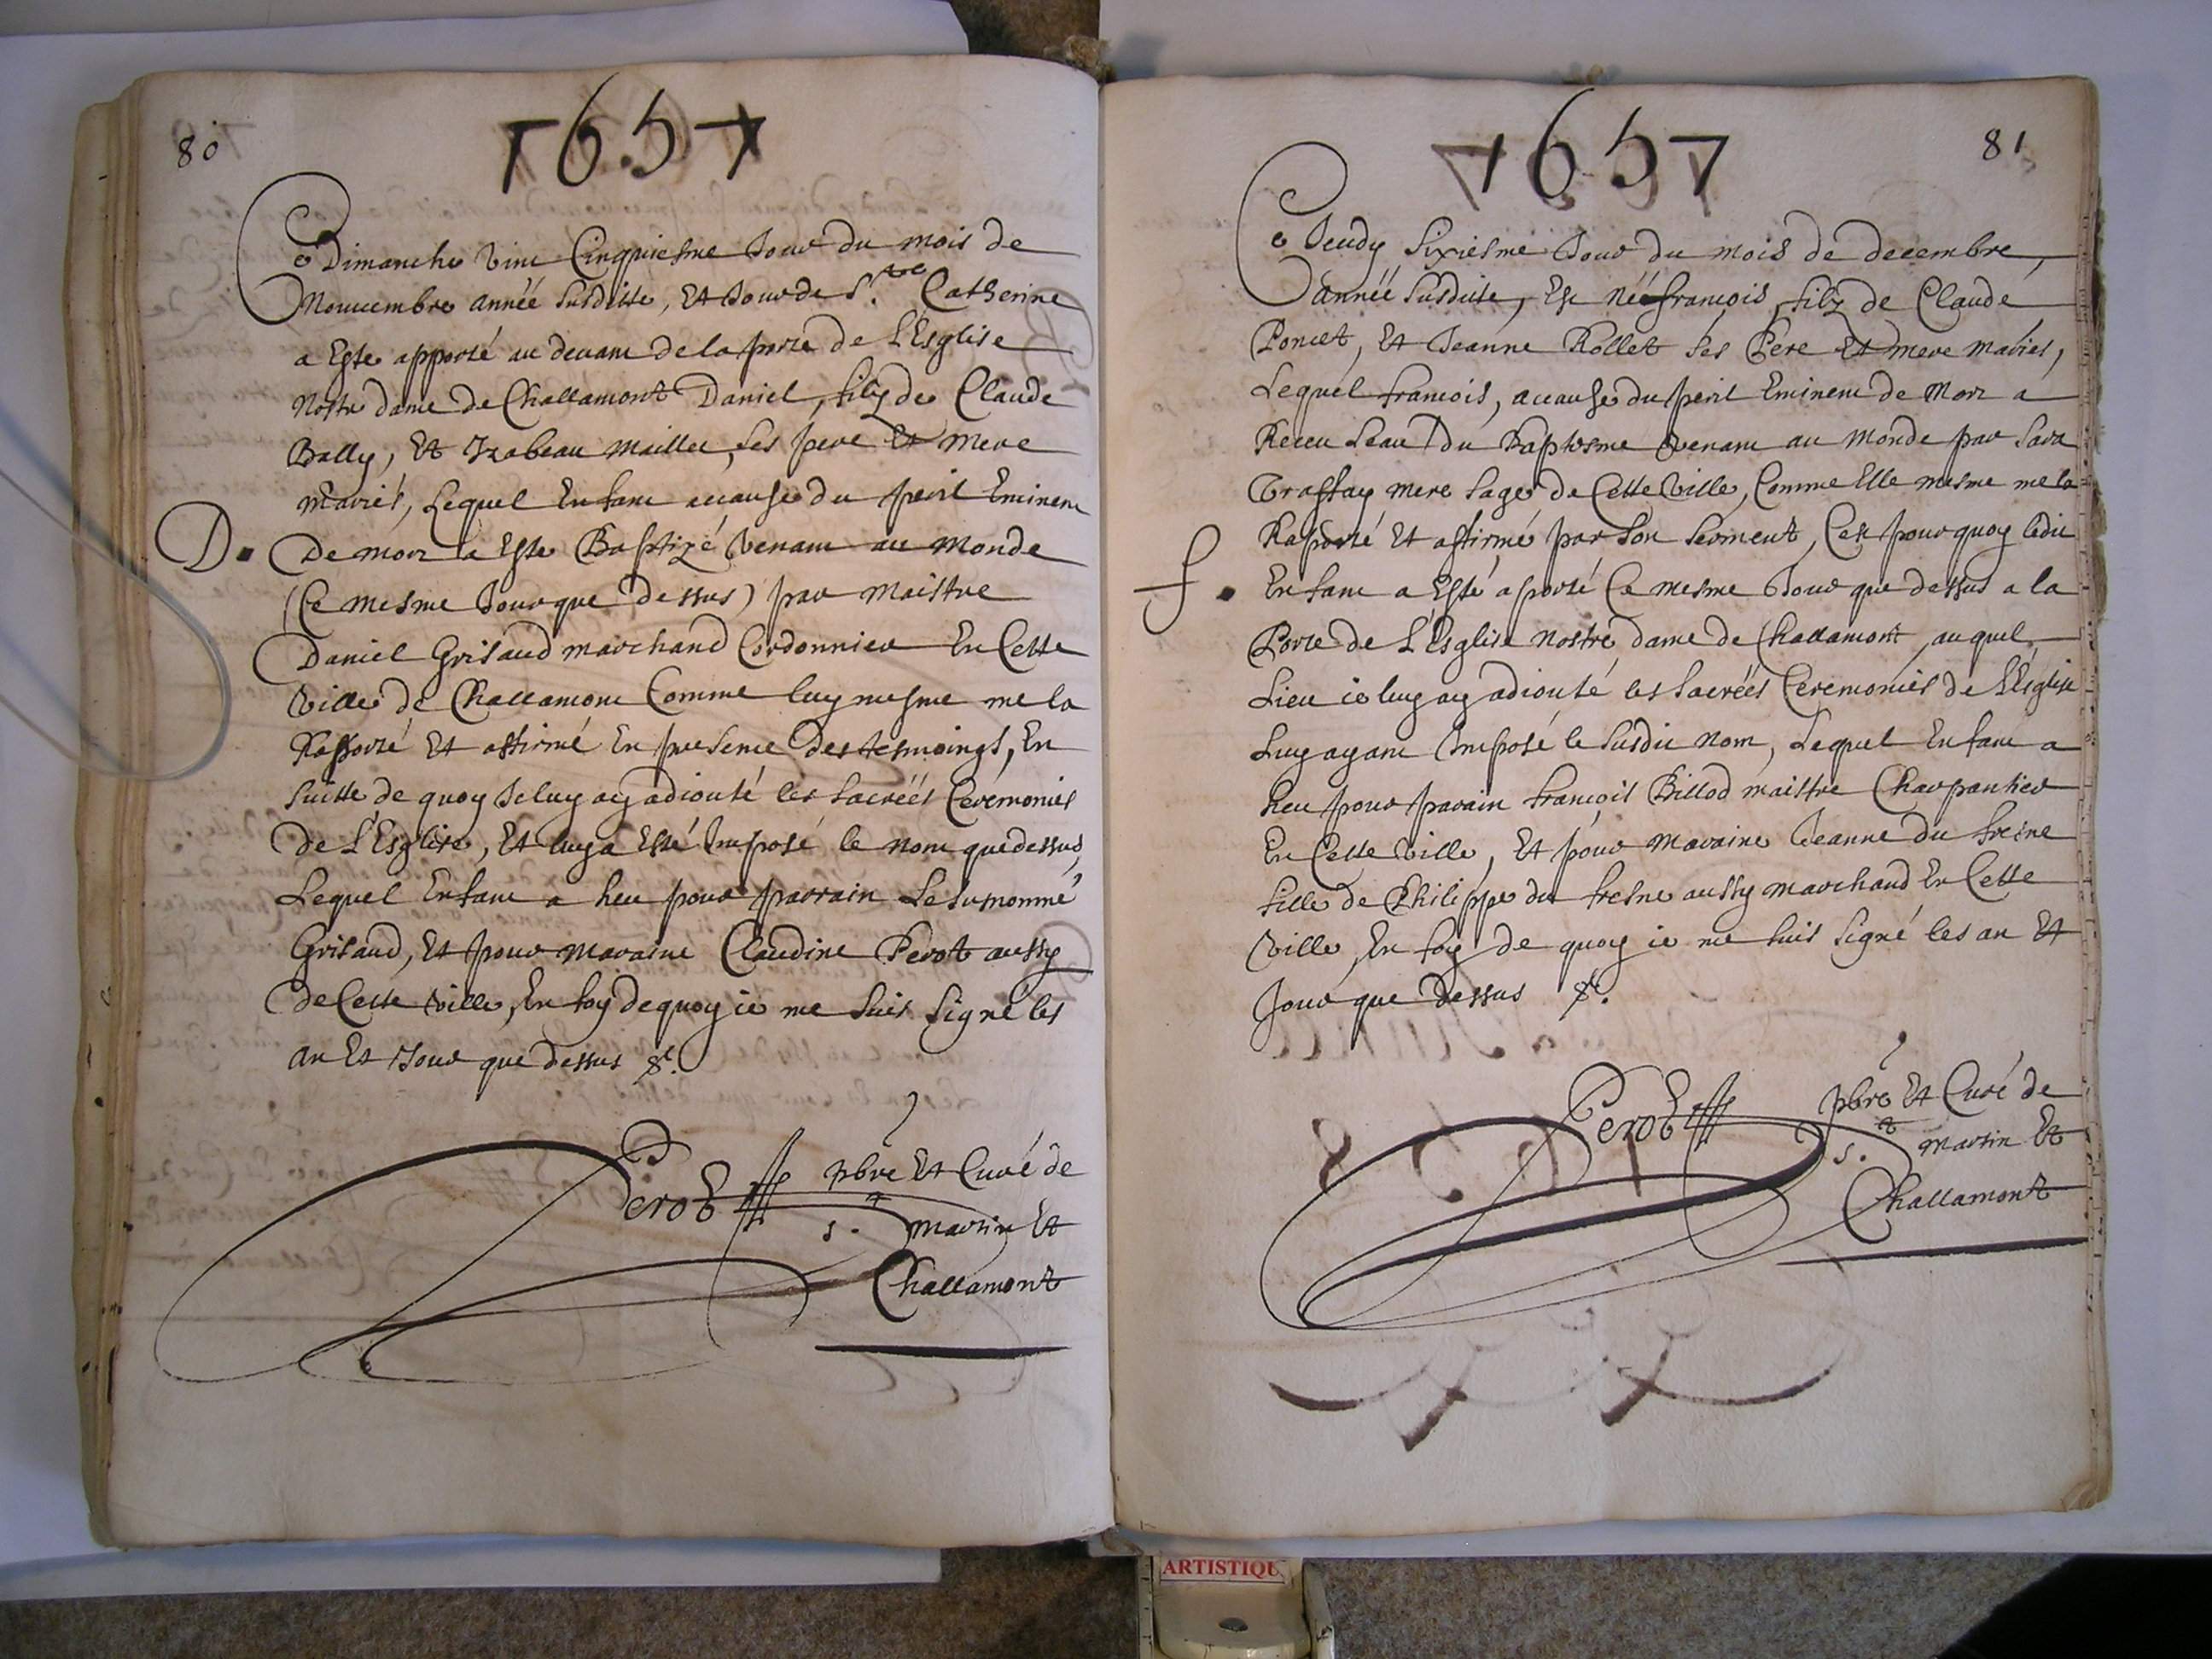 80
1657
Ce Dimanche vint Cinquiesme Jour du mois de
Nouuembre année susditte, Et Jour de S.te Catherine
a Este apporté au deuant de la porte de L'Esglise
Nostre dame de Challamont Daniel, filz de Claude
Bally, Et Izabeau Maillet, ses pere Et mere
Mariés, Lequel Enfant acause du peril Eminent
D. De mort a Este Baptizé venant au monde
(Ce mesme Jour que dessus) par Maistre
Daniel Grisaud marchand Cordonnier En Cette
ville de Challamont Comme luy mesme me la
Rapporté Et affirmé En presence des tesmoings, En
suitte de quoy Je luy ay adiouté les sacréés Ceremonies
De L'Esglise, Et luy a Esté Imposé le nom que dessus,
Lequel Enfant a heu pour parrain Le surnommé
Grisaud, Et pour maraine Claudine Perot aussy
de Cette ville, En foy de quoy ie me suis signé les
an Et Jour que dessus &.
Perot pbre Et Curé de
S.t Martin Et
Challamont
81
1657
Ce Jeudy sixiesme Jour du mois de decembre,
année susditte, Est néé francois, filz de Claude
Poncet, Et Jeanne Rollet ses Pere Et mere mariés,
Lequel francois, acause du peril Eminent de Mort a
Receu Leau du Baptesme venant au Monde par Sara
Trassay mere sage de Cette ville, Comme Elle mesme me la
Rapporté Et affirmé par son serment, Cest pourquoy ledit
f. Enfant a Esté aporté Ce mesme Jour que dessus a la
Porte de L'Esglise nostre dame de Challamont, auquel
Lieu ie luy ay adiouté les sacréés Ceremonies de L'Esglise
Luy ayant Imposé le susdit nom, Lequel Enfant a
heu pour parain francois Billod maistre Charpantier
En Cette ville, Et pour Maraine Jeanne du fresne
fille de Philippe du fresne aussy marchand En Cette
ville, En foy de quoy ie me suis signé les an Et
Jour que dessus &.
Perot pbre Et Curé de
S.t Martin Et
Challamont
ARTISTIQU